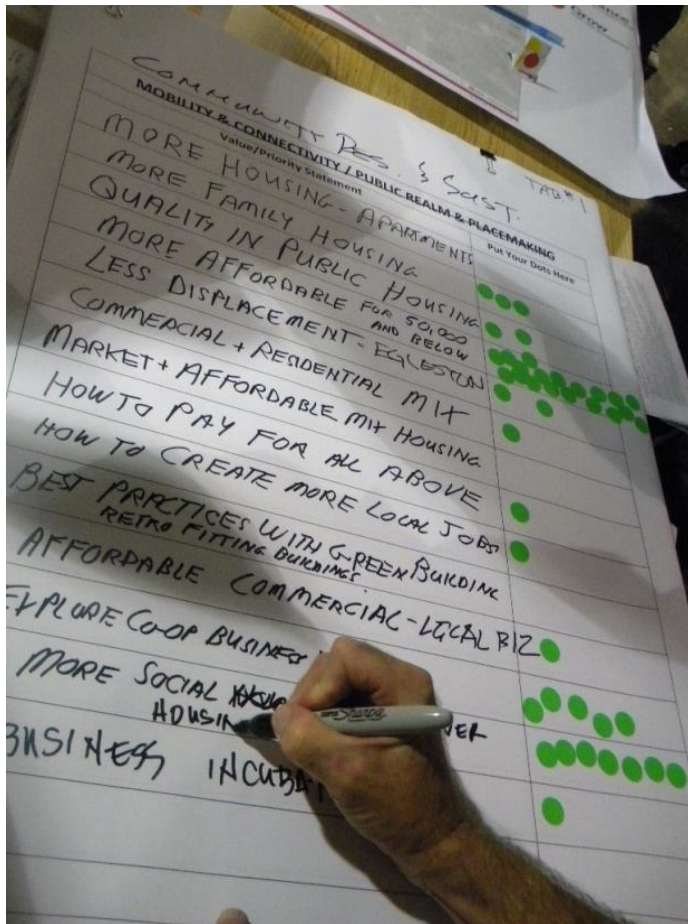 Grow
COMMUNITY DES. & SUST.
TABLE 1
MOBILITY & CONNECTIVITY / PUBLIC REALM & PLACEMAKING
Value/Priority Statement
Put Your Dots Here
MORE HOUSING - APARTMENTS
MORE FAMILY HOUSING
QUALITY IN PUBLIC HOUSING
MORE AFFORDABLE FOR 50,000
AND BELOW
LESS DISPLACEMENT - EGLESTON
COMMERCIAL + RESIDENTIAL MIX
MARKET + AFFORDABLE MIX HOUSING
HOW TO PAY FOR ALL ABOVE
HOW TO CREATE MORE LOCAL JOBS
BEST PRACTICES WITH GREEN BUILDING
RETRO FITTING BUILDINGS
AFFORDABLE COMMERCIAL - LOCAL BIZ
EXPLORE CO-OP BUSINESS
MORE SOCIAL
HOUSIN
BUSINESS INCUBA
Sharpie